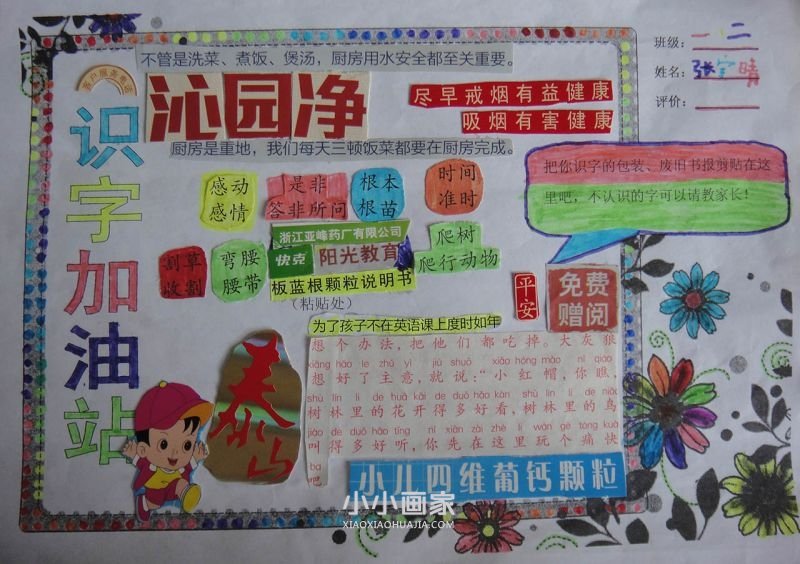 不管是洗菜、煮饭、煲汤，厨房用水安全都至关重要。
客户服务专递
沁园净
厨房是重地，我们每天三顿饭菜都要在厨房完成。
尽早戒烟有益健康
吸烟有害健康
班级：一.二
姓名：张宇晴
评价：
识字加油站
把你识字的包装、废旧书报剪贴在这
里吧，不认识的字可以请教家长！
感动
感情
是非
答非所问
根本
根苗
时间
准时
割草
收割
弯腰
腰带
浙江亚峰药厂有限公司
快克
阳光教育
爬树
爬行动物
板蓝根颗粒说明书
（粘贴处）
平安
免费
赠阅
为了孩子不在英语课上度时如年
想个办法，把他们都吃掉。大灰狼
xiǎng hǎo le zhǔ yì jiù shuō xiǎo hóng mào nǐ qiáo
想好了主意，就说：“小红帽，你瞧
shù lín lǐ de huā kāi de duō hǎo kàn shù lín lǐ de niǎo
树林里的花开得多好看，树林里的鸟
jiào de duō hǎo tīng nǐ xiān zài zhè lǐ wán gè tòng kuài
叫得多好听，你先在这里玩个痛快
ba
吧
小儿四维葡钙颗粒
小小画家
XIAOXIAOHUAJIA.COM